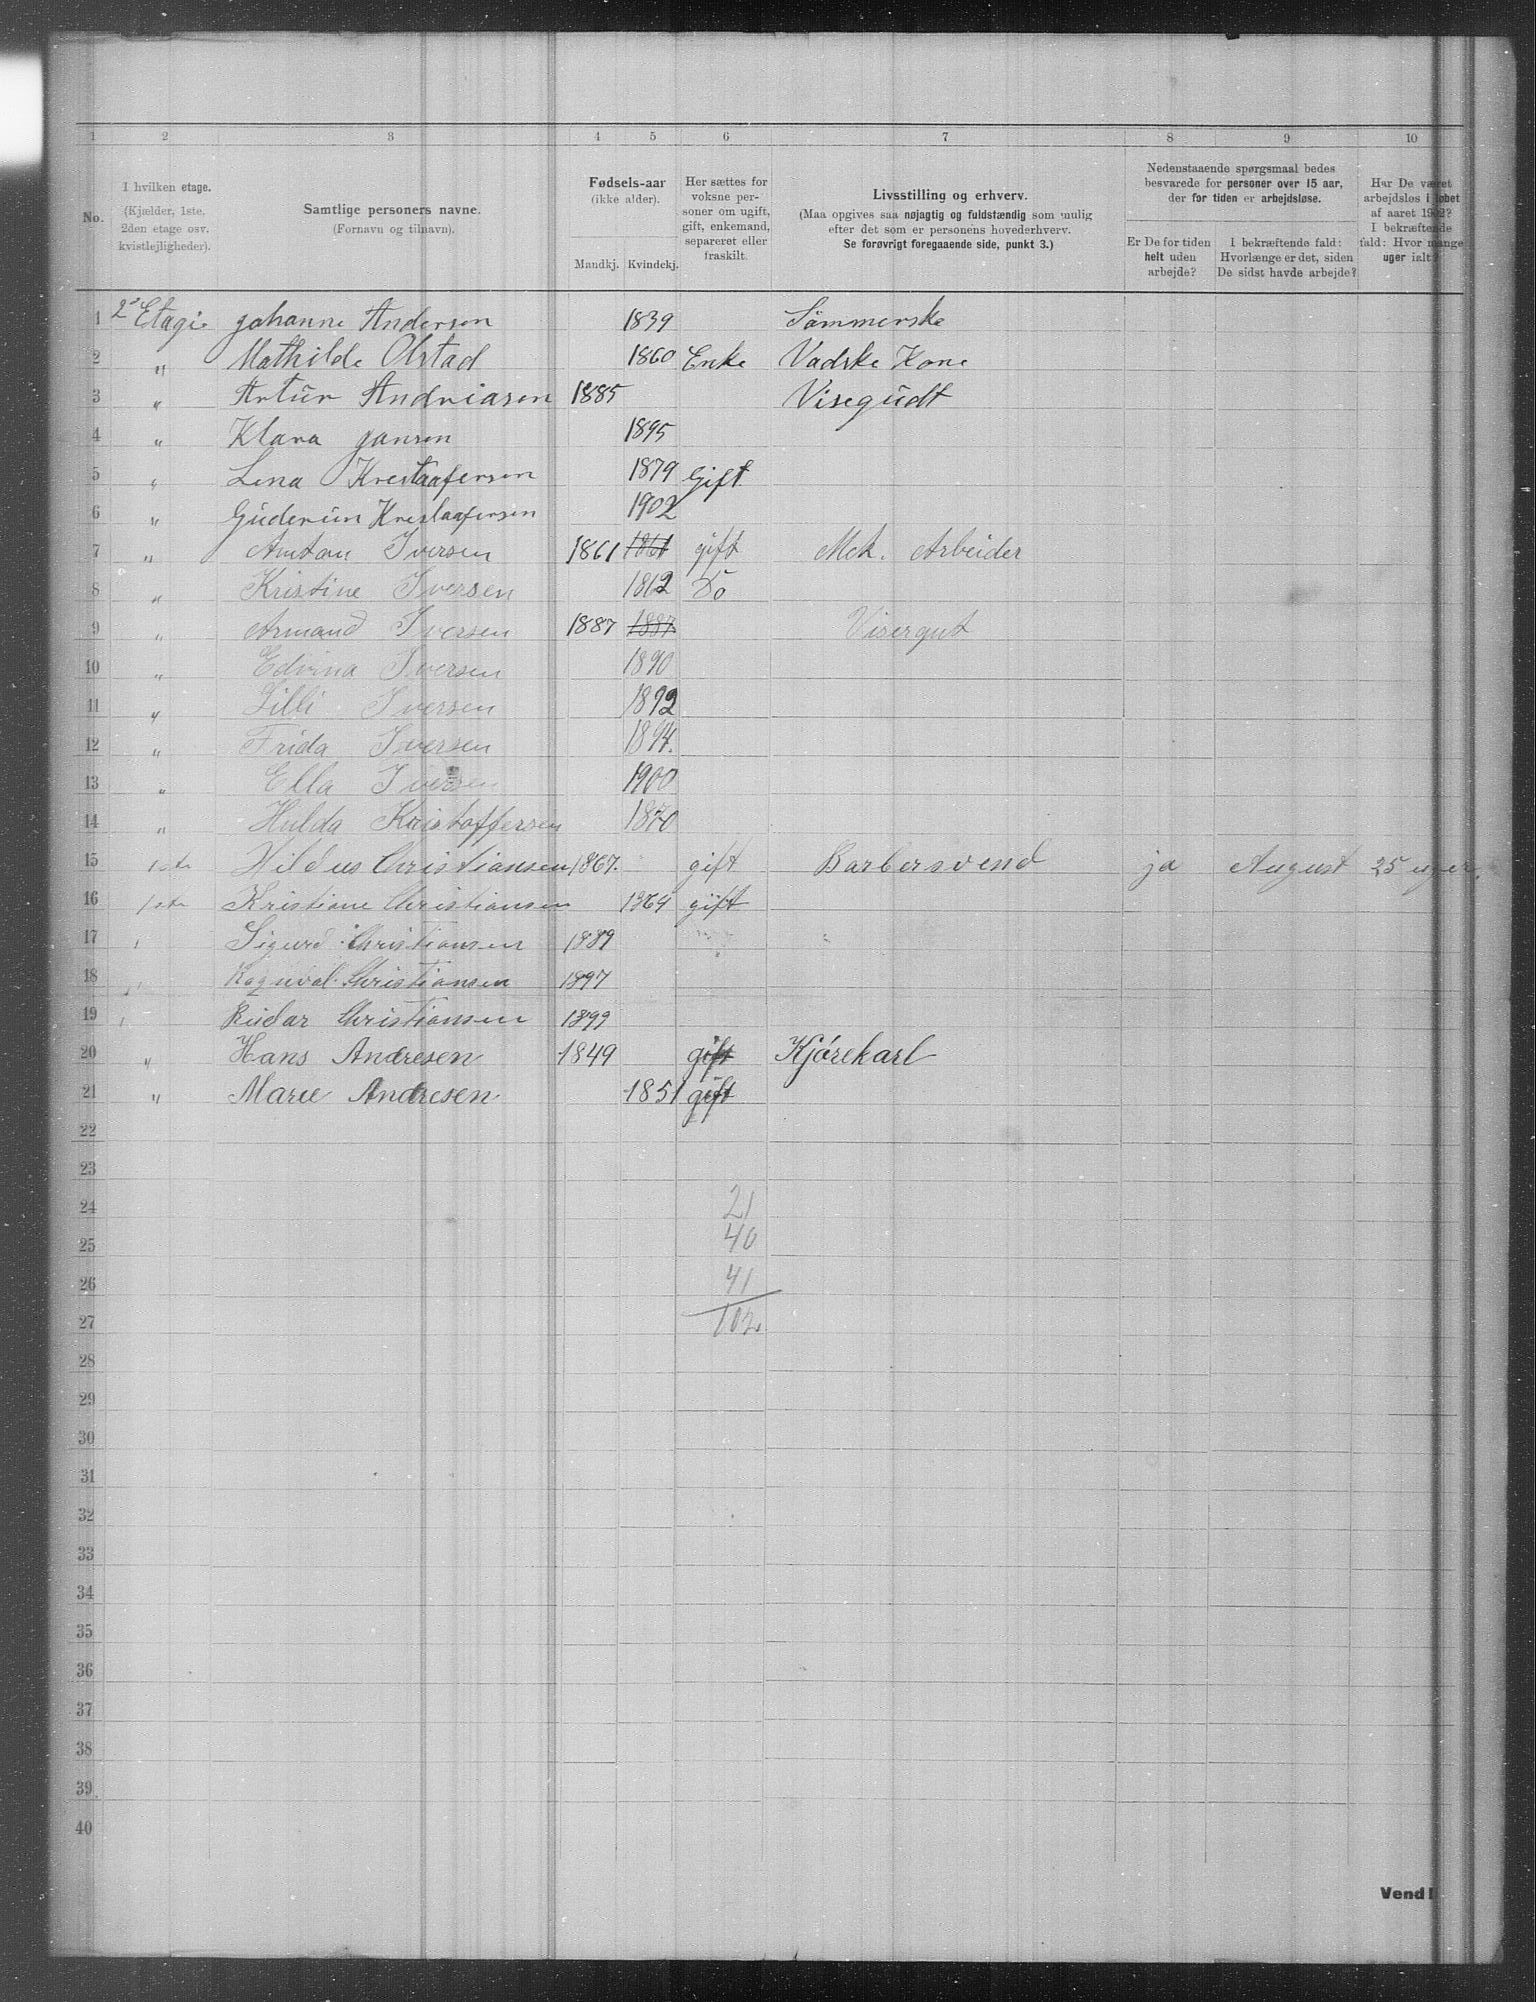 1 2 3 4 5 6 7 8 9 10
No.
I hvilken etage.
(Kjælder, 1ste, 2den etage osv. kvistlejligheder).
Samtlige personers navne.
(Fornavn og tilnavn).
Fødsels-aar
(ikke alder).
Mandkj. Kvindekj.
Her sættes for voksne personer om ugift, gift, enkemand, separeret eller fraskilt.
Livsstilling og erhverv.
(Maa opgives saa nøjagtig og fuldstændig som mulig
efter det som er personens hovederhverv.
Se forøvrigt foregaaende side, punkt 3.)
Nedenstaaende spørgsmaal bedes
besvarede for personer over 15 aar,
der for tiden er arbejdsløse.
Er De for tiden helt uden arbejde?
I bekræftende fald: Hvorlænge er det, siden De sidst havde arbejde?
Har De været arbejdsløs i løbet af aaret 1902? I bekræftende fald: Hvor mange uger ialt?
1 2' Etagie Johanne Andersen 1839 Sömmerske
2 " Mathilde Olstad 1860 Enke Vadske Kone
3 " Artur Andriasen 1885 Visegudt
4 " Klara Jansen 1895
5 " Lena Krestaafersen 1879 Gift
6 " Guderun Krestaafersen 1902
7 " Anton Iversen 1861 1861 gift Mek. Arbeider
8 " Kristine Iversen 1862 Do
9 " Armand Iversen 1887 1887 Visergut
10 " Edvina Iversen 1890
11 " Lilli Iversen 1892
12 " Frida Iversen 1894.
13 " Ella Iversen 1900
14 " Hulda Kristoffersen 1870
15 1ste Hildus Christiansen 1867. gift Barbersvend ja August 25 uger.
16 1ste Kristiane Christiansen 1864 gift
17 Sigurd Christiansen 1889
18 " Ragnval Christiansen 1897
19 Reidar Christiansen 1899
20 " Hans Andresen 1849 gift Kjørekarl
21 " Marie Andresen 1851 gift
22
23
24 21
25 40
26 41
27 102.
28
29
30
31
32
33
34
35
36
37
38
39
40
Vend!